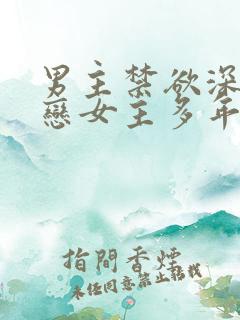 男主禁欲深
戀女主多年
指間香煙
未經同意禁止轉載